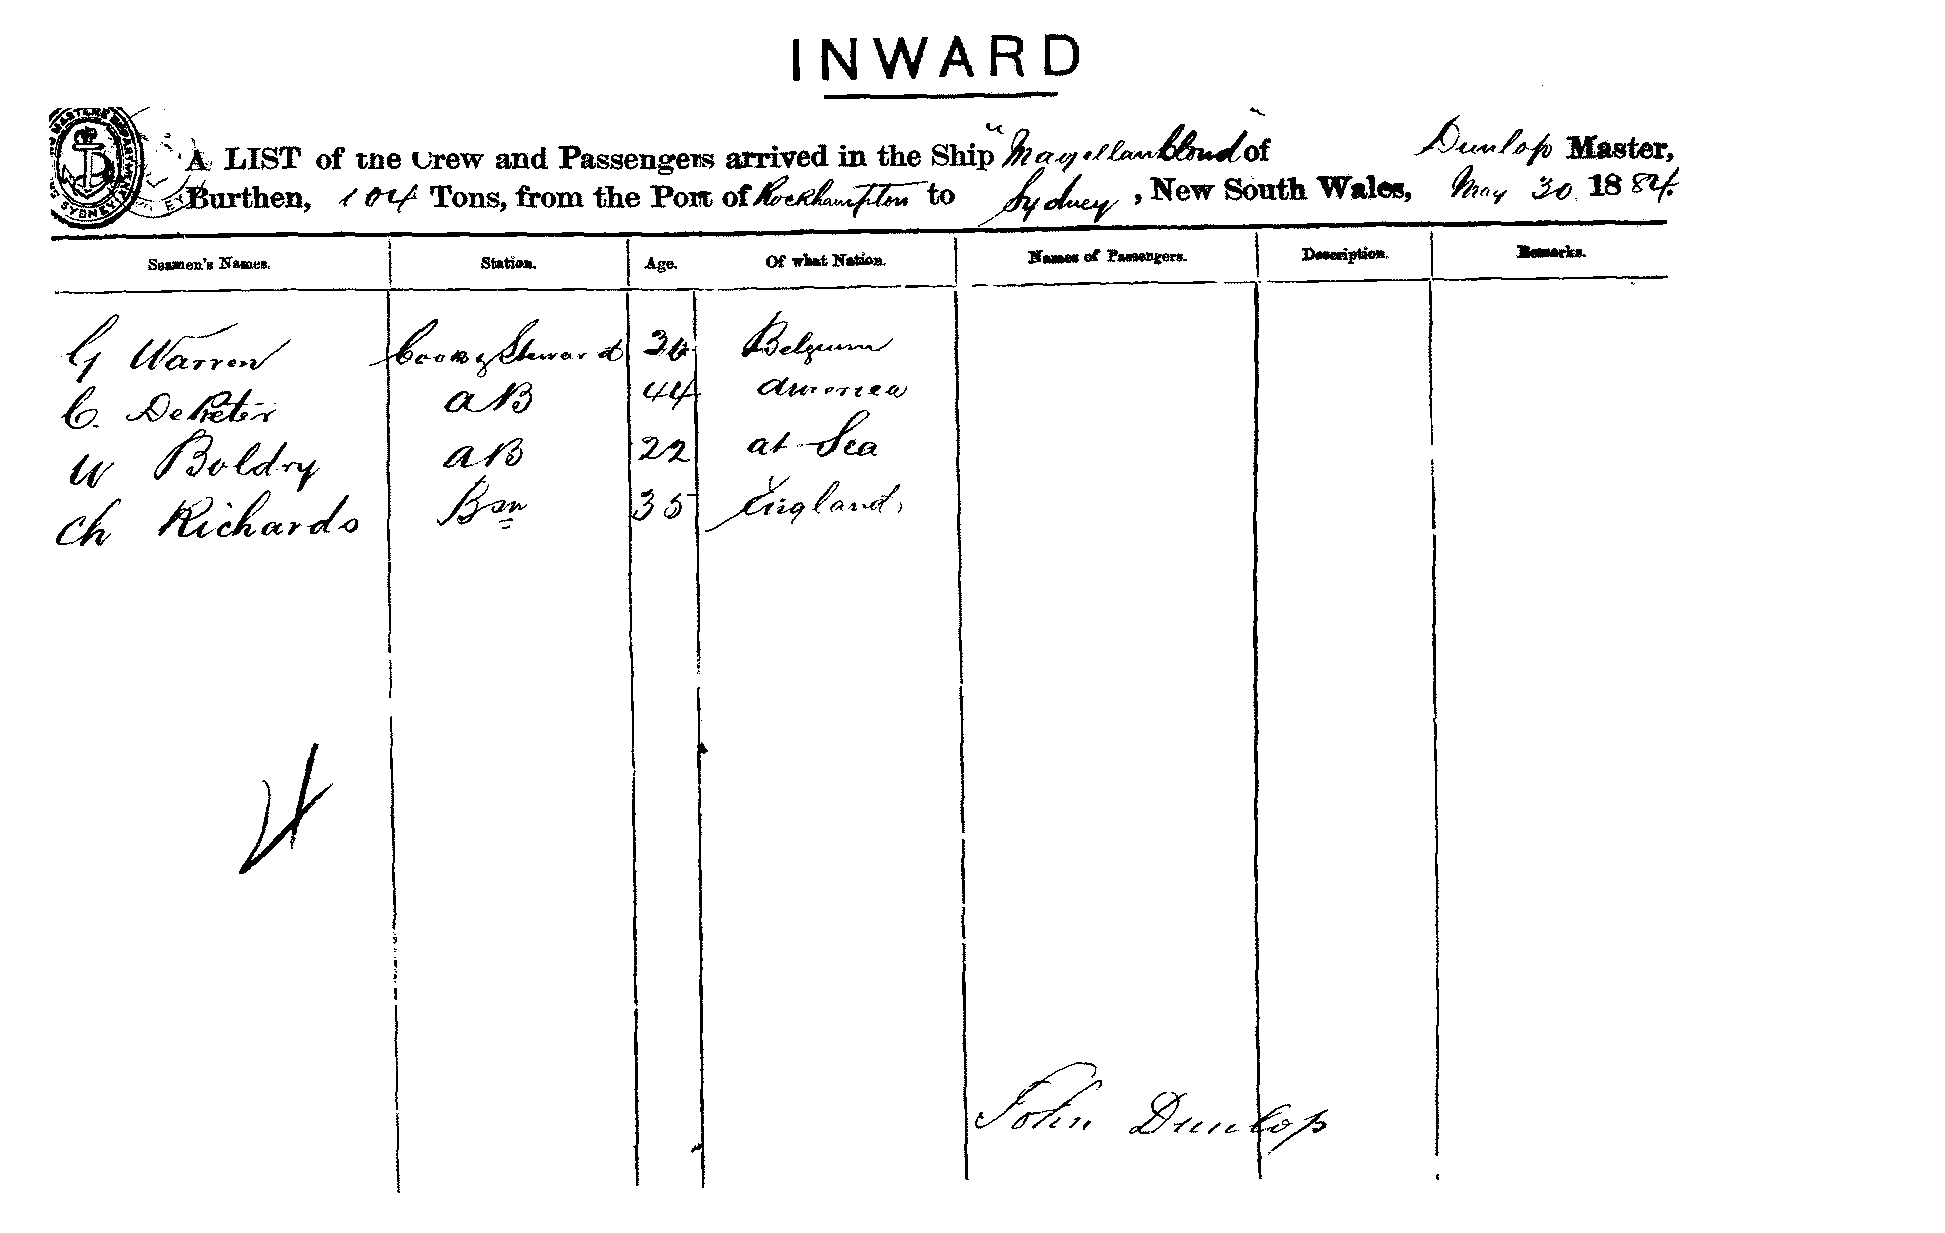 INWARD
A LIST of the Crew and Passengers arrived in the Ship "Magellan Cloud" of Dunlop Master,
Burthen, 104 Tons, from the Port of Rockhampton to Sydney, New South Wales, May 30 1884.
Seamen's Names. Station. Age. Of what Nation. Names of Passengers. Description. Remarks.
G Warren Cook & Steward 36 Belgium
C. De Peter AB 44 America
W Boldry AB 22 at Sea
Ch Richards Bsn 35 England
John Dunlop